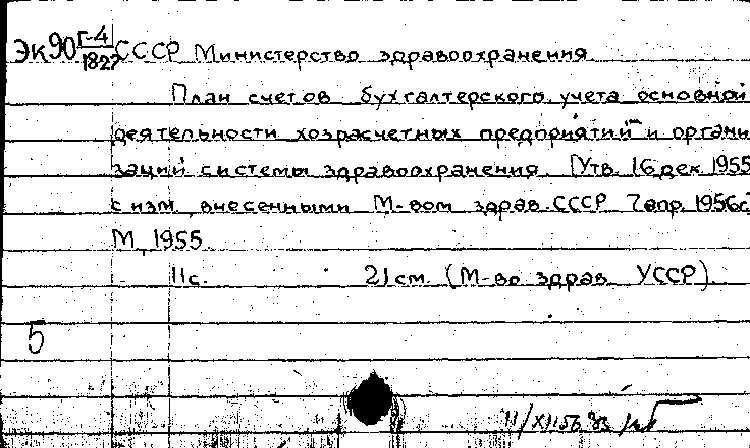 Эк90 Г-4/1827 СССР Министерство здравоохранения.
План счетов бухгалтерского учета основной
деятельности хозрасчетных предприятий и органи
заций системы здравоохранения. [Утв. 16 дек. 1955
с изм., внесенными М-вом здрав. СССР 7 апр. 1956г.
М., 1955.
11с. 21см. (М-во здрав. УССР).
5